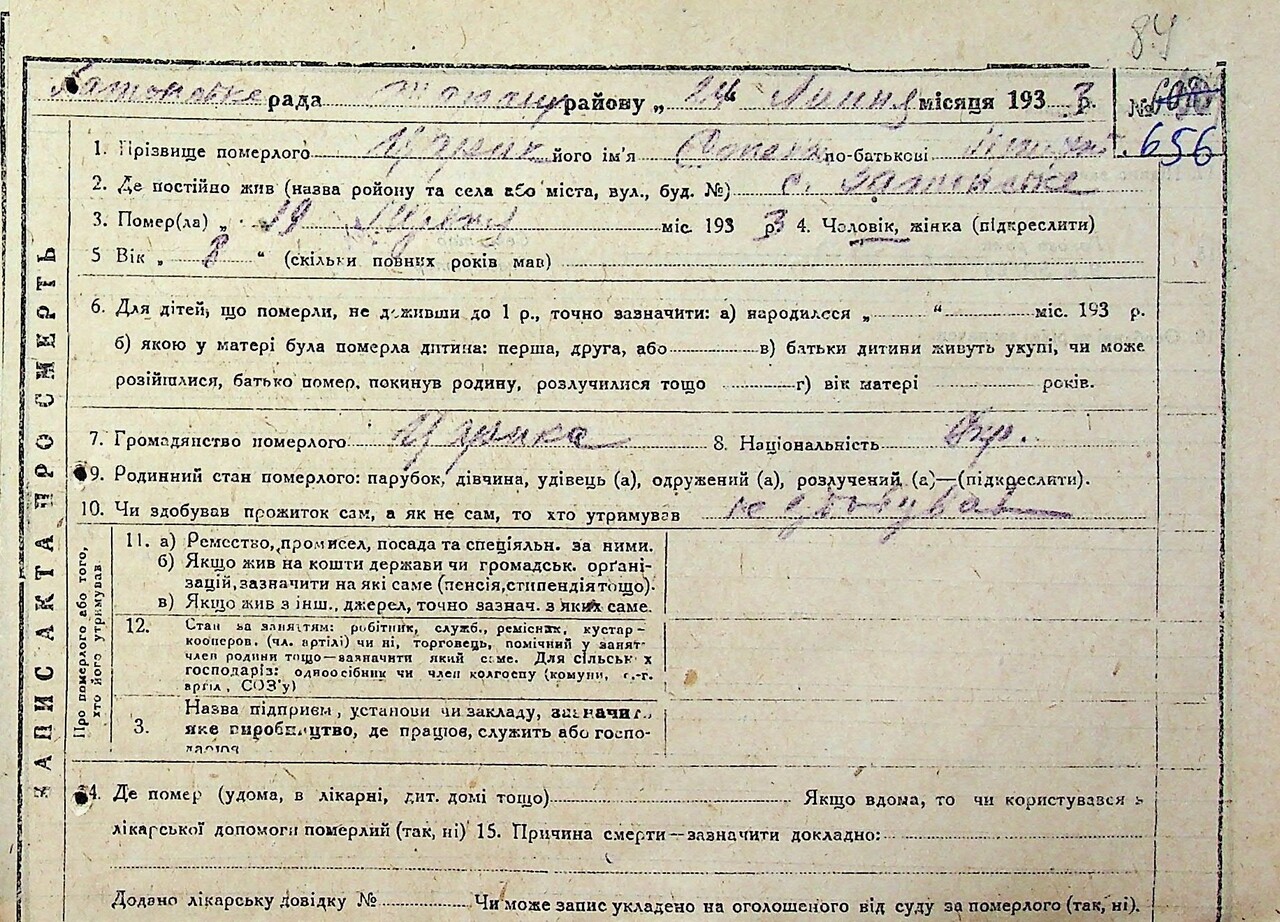 84
рада районy „ 24 " Липня місяця 193 3 р. №
656
1. Прізвище померлого його ім'я по-батькові
2. Де постійно жив (назва ройону та села або міста, вул., буд. №) с.
3. Помер(ла) „ 19 міс. 193 3 р. 4. Чоловік, жінка (підкреслити)
5 Вік „ 8 " (скільки повних років мав)
6. Для дітей, що померли, не доживши до 1 р., точно зазначити: а) народилося „ " міс. 193 р.
б) якою у матері була померла дитина: перша, друга, або в) батьки дитини живуть укупі, чи може
розійшлися, батько помер, покинув родину, розлучилися тощо г) вік матері років.
7. Громадянство померлого 8. Національність Укр.
9. Родинний стан померлого: парубок, дівчина, удівець (а), одружений (а), розлучений (а)—(підкреслити).
10. Чи здобував прожиток сам, а як не сам, то хто утримував не здобував
ЗАПИС АКТА ПРО СМЕРТЬ
Про померлого або того,
хто його утримував.
11. а) Ремество, промисел, посада та спеціяльн. за ними.
б) Якщо жив на кошти держави чи громадськ. орґані-
зацій, зазначити на які саме (пенсія, стипендія тощо).
в) Якщо жив з інш., джерел, точно зазнач. з яких саме.
12. Стан за заняттям: робітник, служб., ремісник, кустар-
кооперов. (чл. артілі) чи ні, торговець, помічний у занят.
член родини тощо—зазначити який саме. Для сільськ х
господарів: одноосібник чи член колгоспу (комуни, с.-г.
артіл, СОЗ'у)
3. Назва підприєм, установи чи закладу, зазначить
яке виробництво, де працює, служить або госпо-
дарює
14. Де помер (удома, в лікарні, дит. домі тощо) Якщо вдома, то чи користувався з
лікарської допомоги померлий (так, ні) 15. Причина смерти—зазначити докладно:
Додано лікарську довідку № Чи може запис укладено на оголошеного від суду за померлого (так, ні).